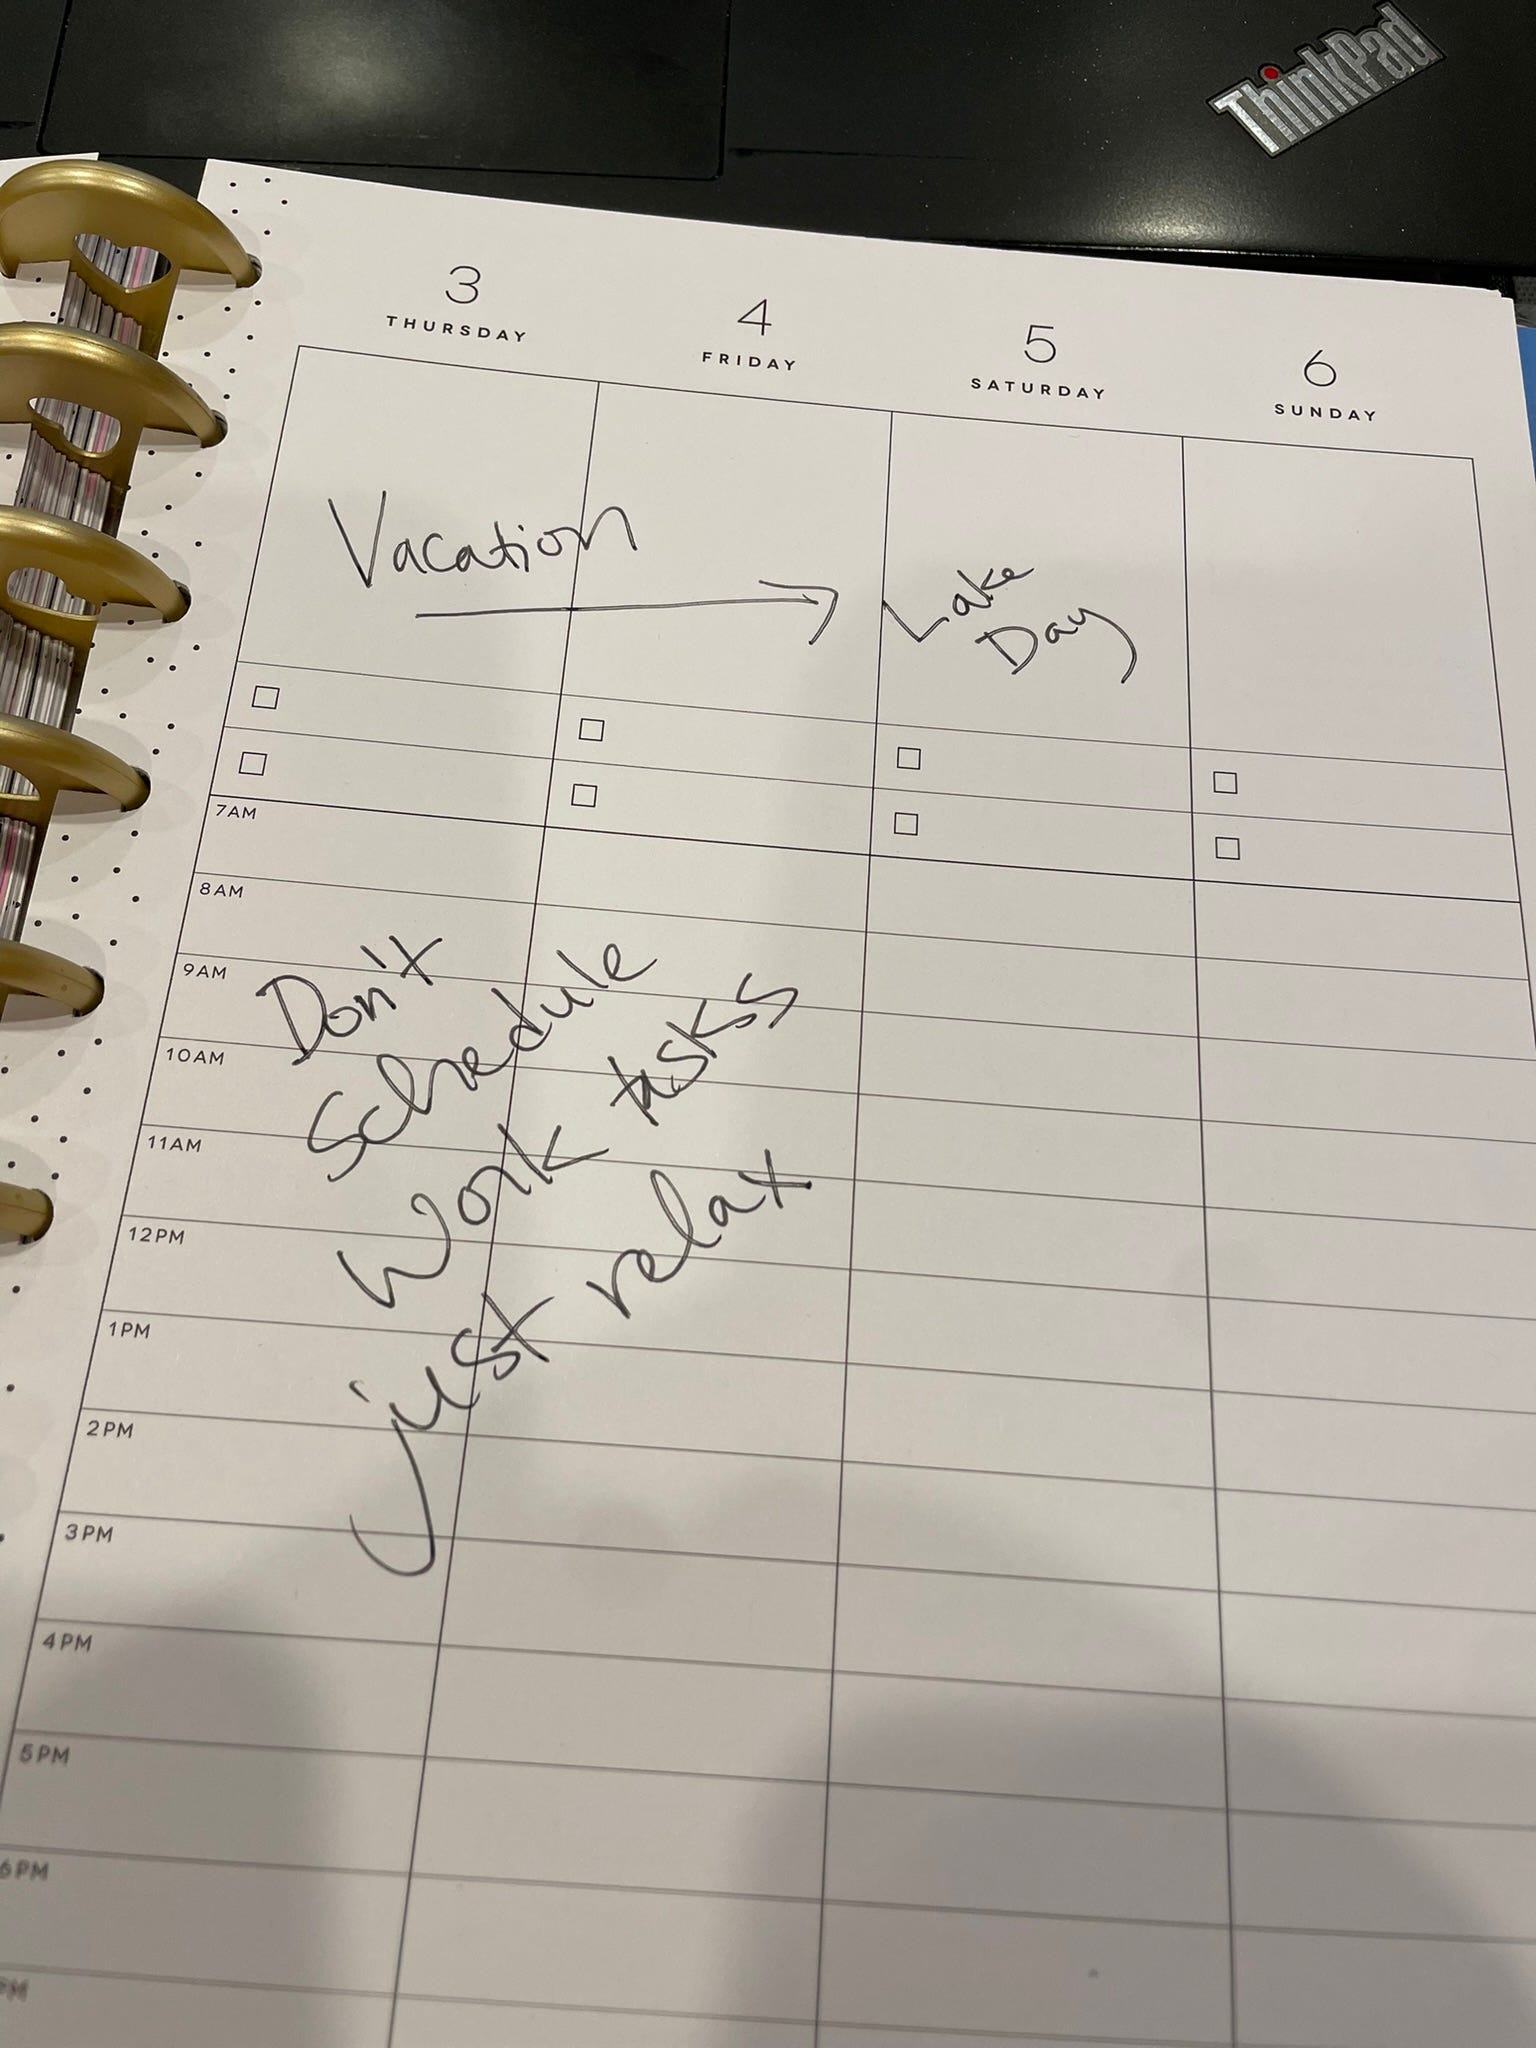 ThinkPad
3
THURSDAY
4
FRIDAY
5
SATURDAY
6
SUNDAY
Vacation
Lake
Day
7AM
8AM
9AM
10AM
11AM
12PM
1PM
2PM
3PM
4PM
5PM
6PM
PM
Don't
Schedule
Work tasks
just relax